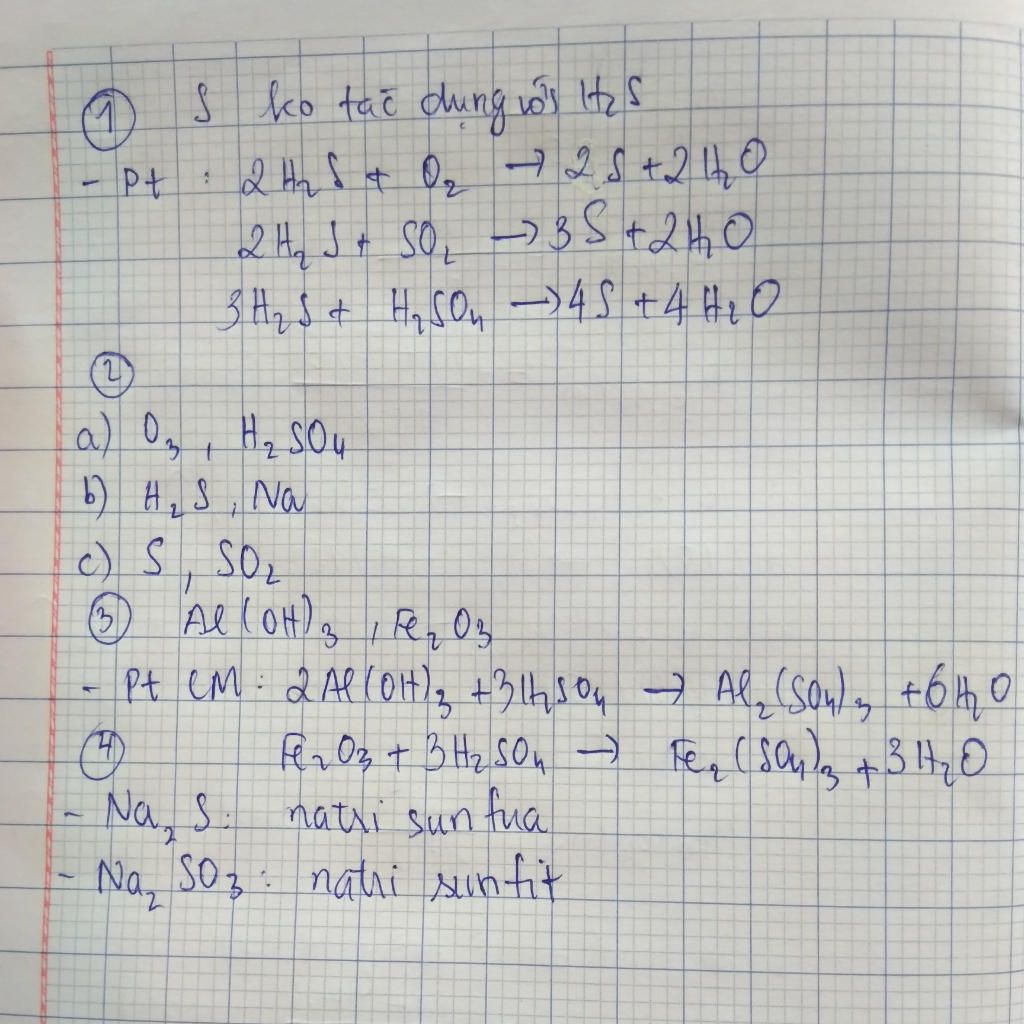 ① S ko tác dụng với H₂S
- Pt : 2H₂S + O₂ → 2S + 2H₂O
2H₂S + SO₂ → 3S + 2H₂O
3H₂S + H₂SO₄ → 4S + 4H₂O
②
a) O₃ , H₂SO₄
b) H₂S , Na
c) S , SO₂
③ Al(OH)₃ , Fe₂O₃
- Pt CM : 2Al(OH)₃ + 3H₂SO₄ → Al₂(SO₄)₃ + 6H₂O
④ Fe₂O₃ + 3H₂SO₄ → Fe₂(SO₄)₃ + 3H₂O
- Na₂S : natri sunfua
- Na₂SO₃ : natri sunfit